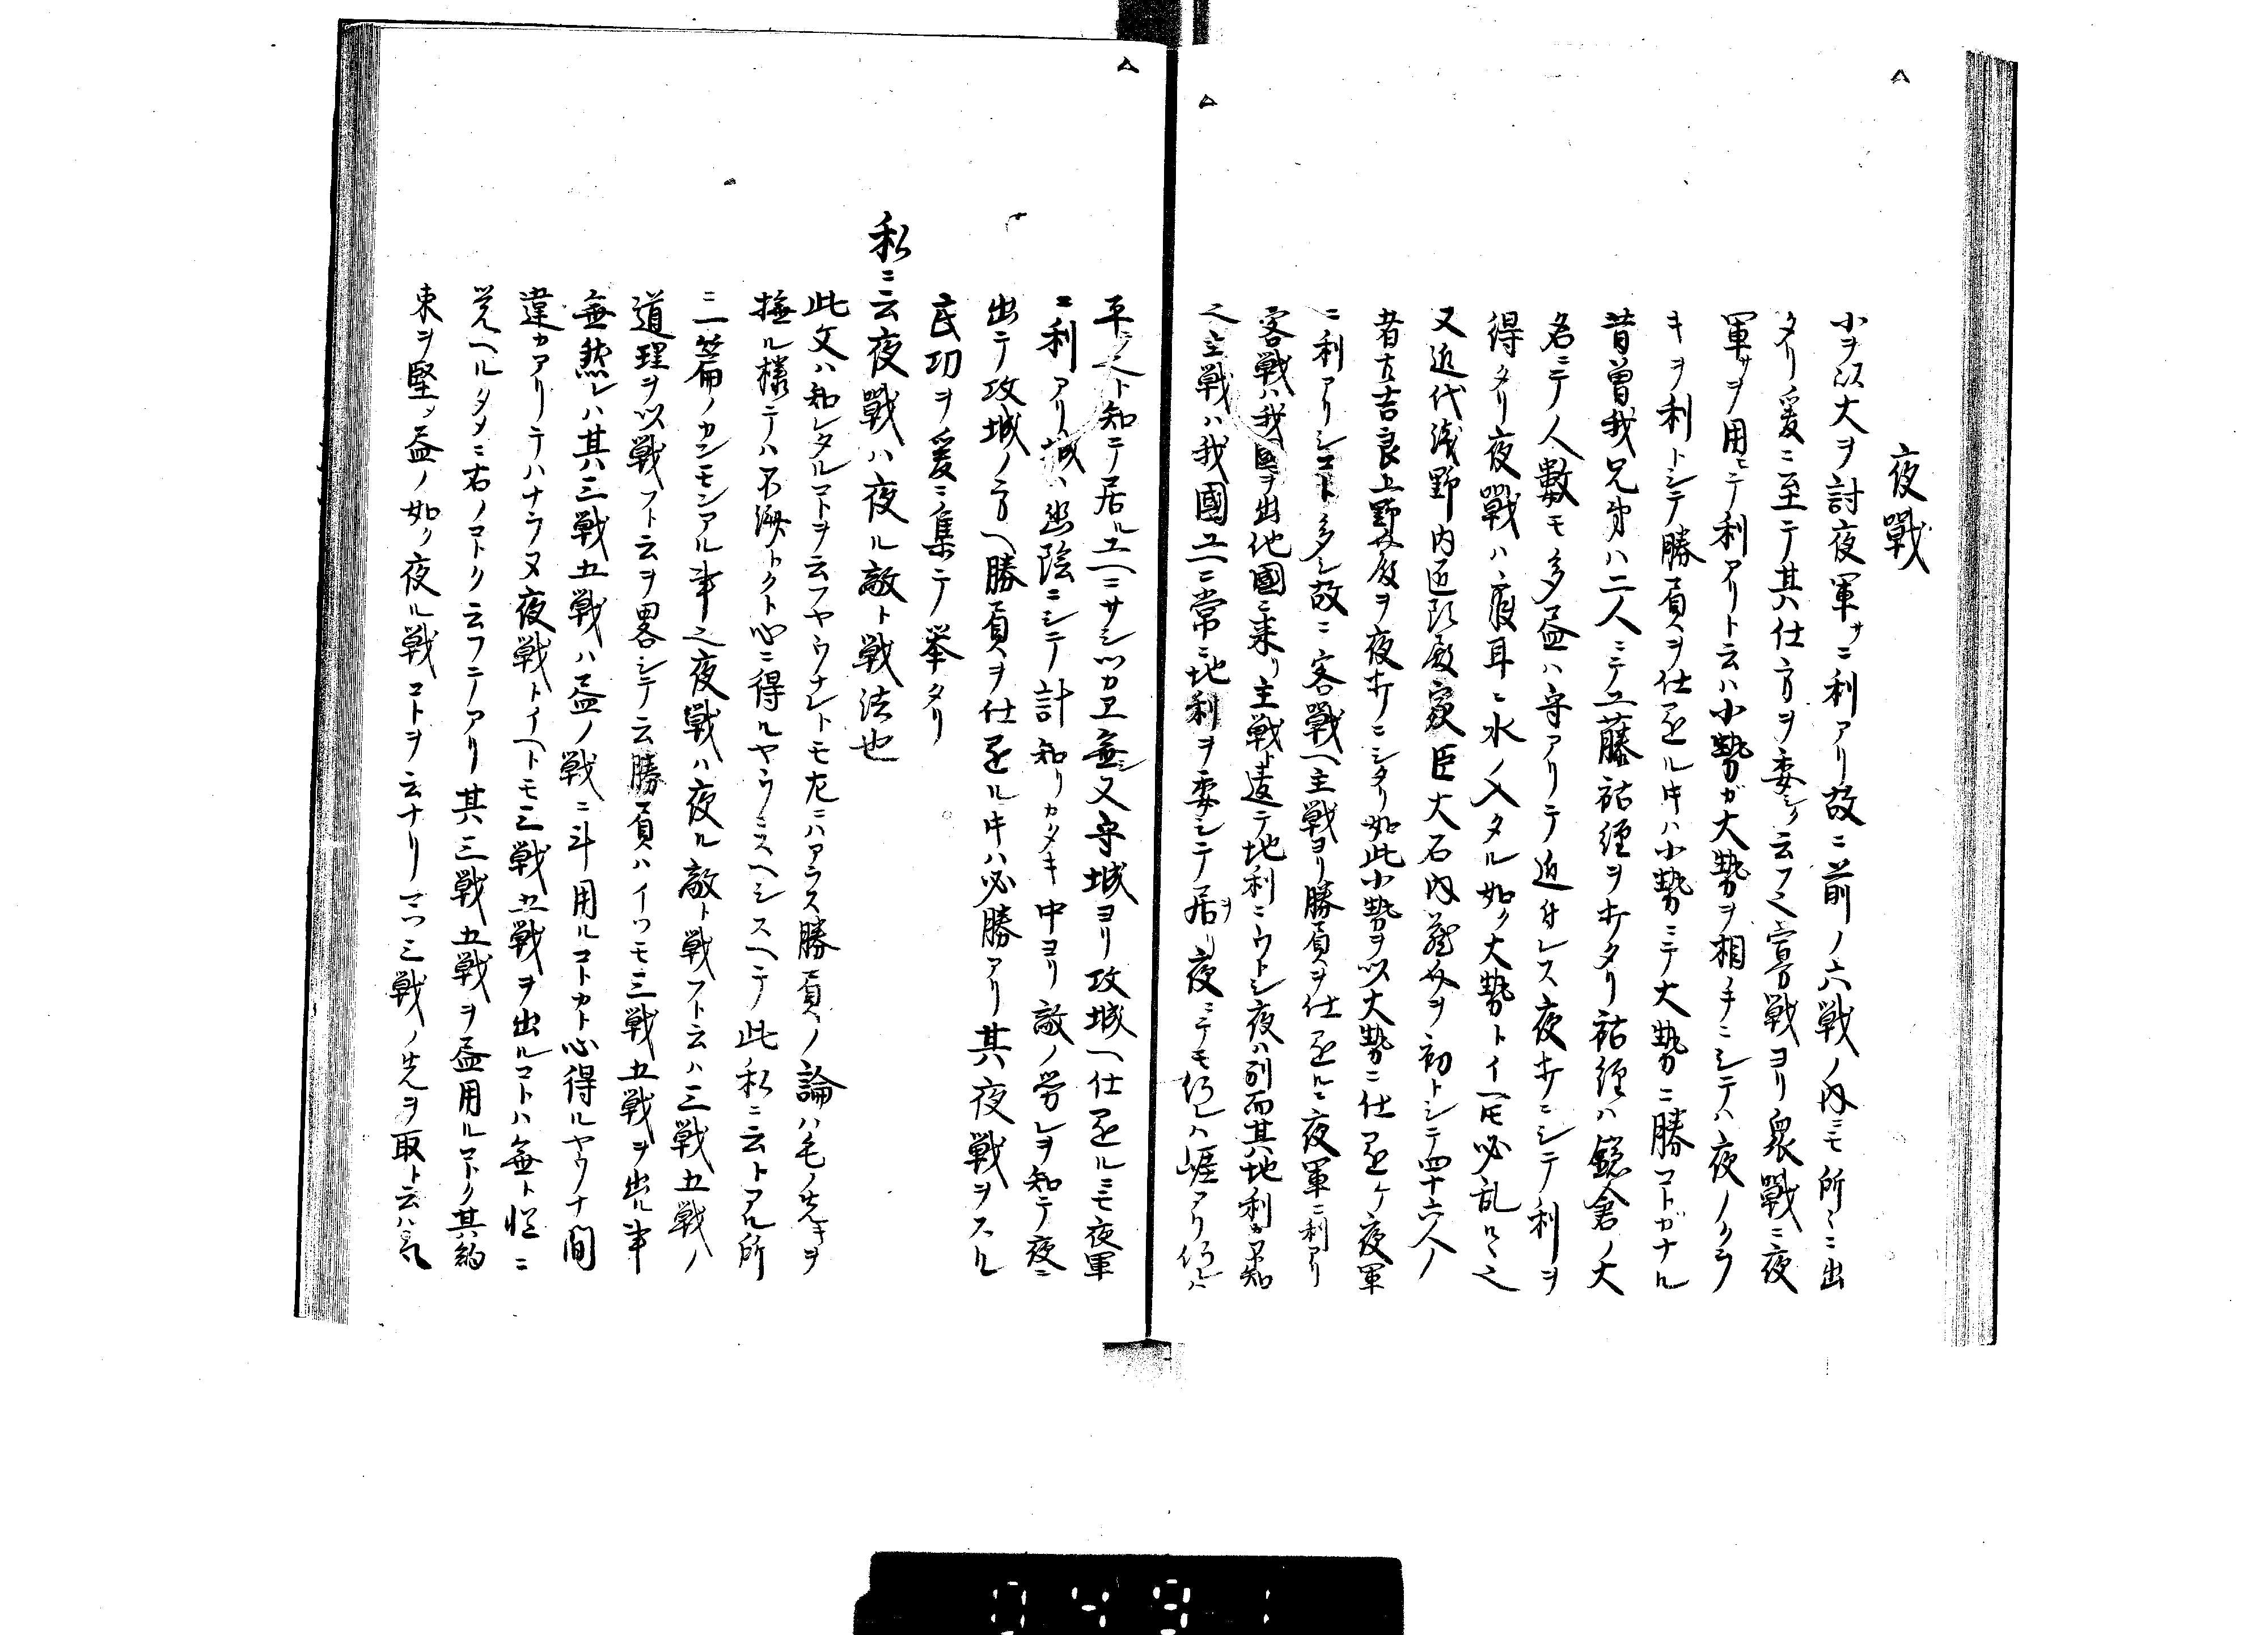 夜戰
小ヲ以大ヲ討夜軍サニ利アリ故ニ前ノ六戦ノ内ニモ所々ニ出
タリ爰ニ至テ其仕方ヲ委ク云フ之 戦ヨリ衆戰ニ夜
軍サヲ用ヒテ利アリト云ハ小勢ガ大勢ヲ相手ニシテハ夜ノクラ
キヲ利トシテ勝負ヲ仕 ル片ハ小勢ニテ大勢ニ勝コトガナル
昔曽我兄弟ハ二人ニテ工藤祐經ヲ打タリ祐經ハ鎌倉ノ大
名ニテ人數モ多 ハ守アリテ近付レス夜打ニシテ利ヲ
得タリ夜戰ハ寢耳ニ水ノ入タル如ク大勢トイヘ𪜈必乱ルヽ之
又近代浅野内匠頭殿家臣大石内藏介ヲ初トシテ四十六人ノ
者共吉良上野介殿ヲ夜打ニシタリ如此小勢ヲ以大勢ニ仕 ケ夜軍
ニ利アリシコト多シ故ニ客戰ヘ主戦ヨリ勝負ヲ仕 ルニ夜軍ニ利アリ
客戦ハ我國ヲ出他國ニ来リ主戦ト違テ地利ニウトシ夜ハ別而其地利ガ不知
之主戦ハ我國ユヘニ常ニ地利ヲ委シテ居ヲリ夜ニテモ ハ崖アリ
平 ト知テ居ルユヘニサシツカヱ無シ又守城ヨリ攻城ヘ仕 ルニモ夜軍
ニ利アリ城ハ幽陰ニシテ計知リカタキ中ヨリ敵ノ労レヲ知テ夜ニ
出テ攻城ノ方ヘ勝負ヲ仕 ル片ハ必勝アリ其夜戦ヲスル
 功ヲ爰ニ集テ挙タリ
私ニ云夜戰ハ夜ル敵ト戦法也
此文ハ知レタルコトヲ云フヤウナレトモ左ニハアラス勝負ノ論ハ毛ノ先キヲ
 ル様テハ不 トクト心ニ得ルヤウニスヘシスヘテ此私ニ云トアル所
ニ一篇ノカンモンアル事之夜戦ハ夜ル敵ト戦フト云ハ三戦五戦ノ
道理ヲ以戦フト云ヲ畧シテ云勝負ハイツモ三戦五戦ヲ出ル事
無然レハ其三戦五戦ハ ノ戦ニ斗用ルコトカト心得ルヤウナ間
違カアリテハナラヌ夜戦トイヘトモ三戦五戦ヲ出ルコトハ無ト慥ニ
覚ヘルタメニ右ノコトク云フニテアリ其三戦五戦ヲ 用ルコトク其約
束ヲ堅シ ノ如ク夜ル戦コトヲ云ナリ一ツ三戦ノ先ヲ取ト云ハ